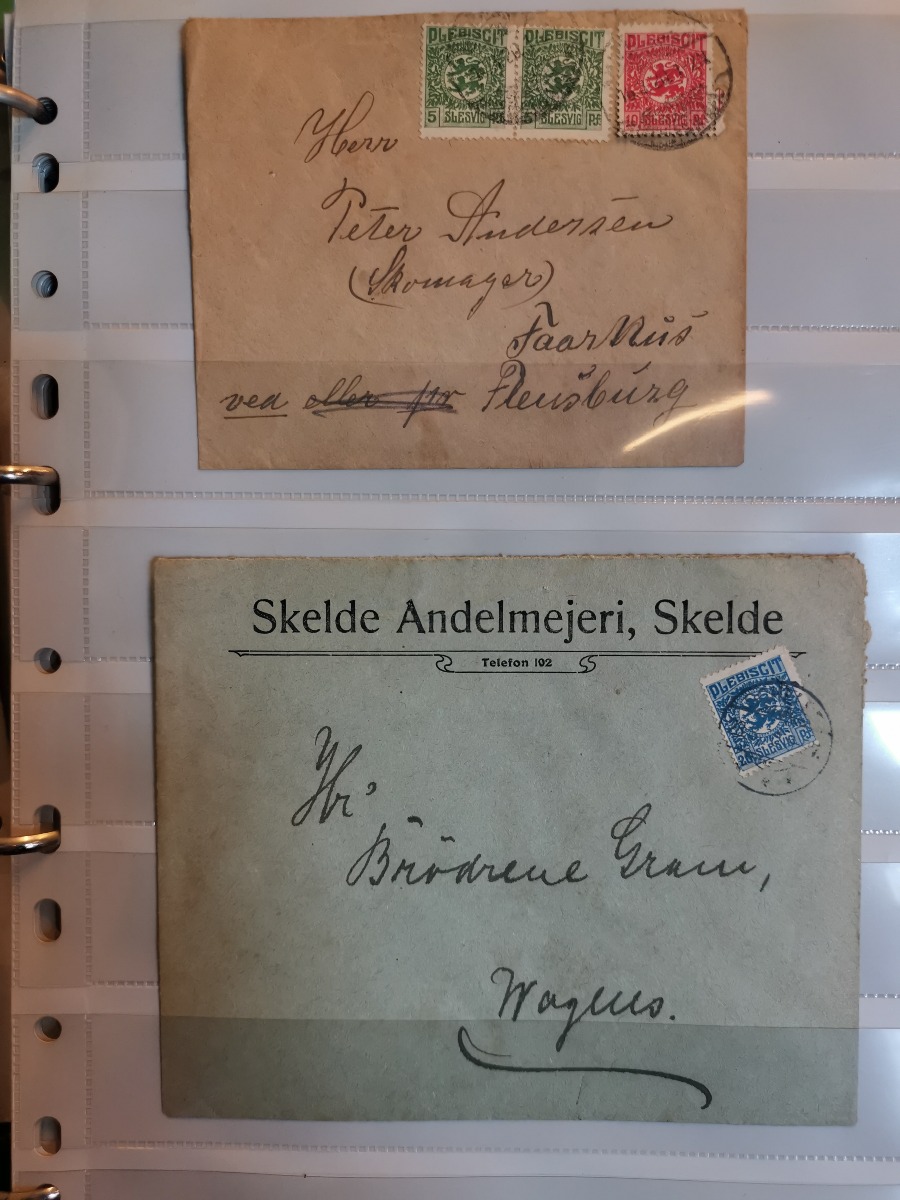 PLEBISCIT PLEBISCIT PLEBISCIT
5 SLESVIG PF 5 SLESVIG PF 10 SLESVIG PF
Herr
Peter Andersen
(Skomager)
Faarhus
ved eller pr Flensburg
Skelde Andelmejeri, Skelde
Telefon 102
PLEBISCIT
20 SLESVIG PF
Hr.
Brödrene Gram,
Wogens.